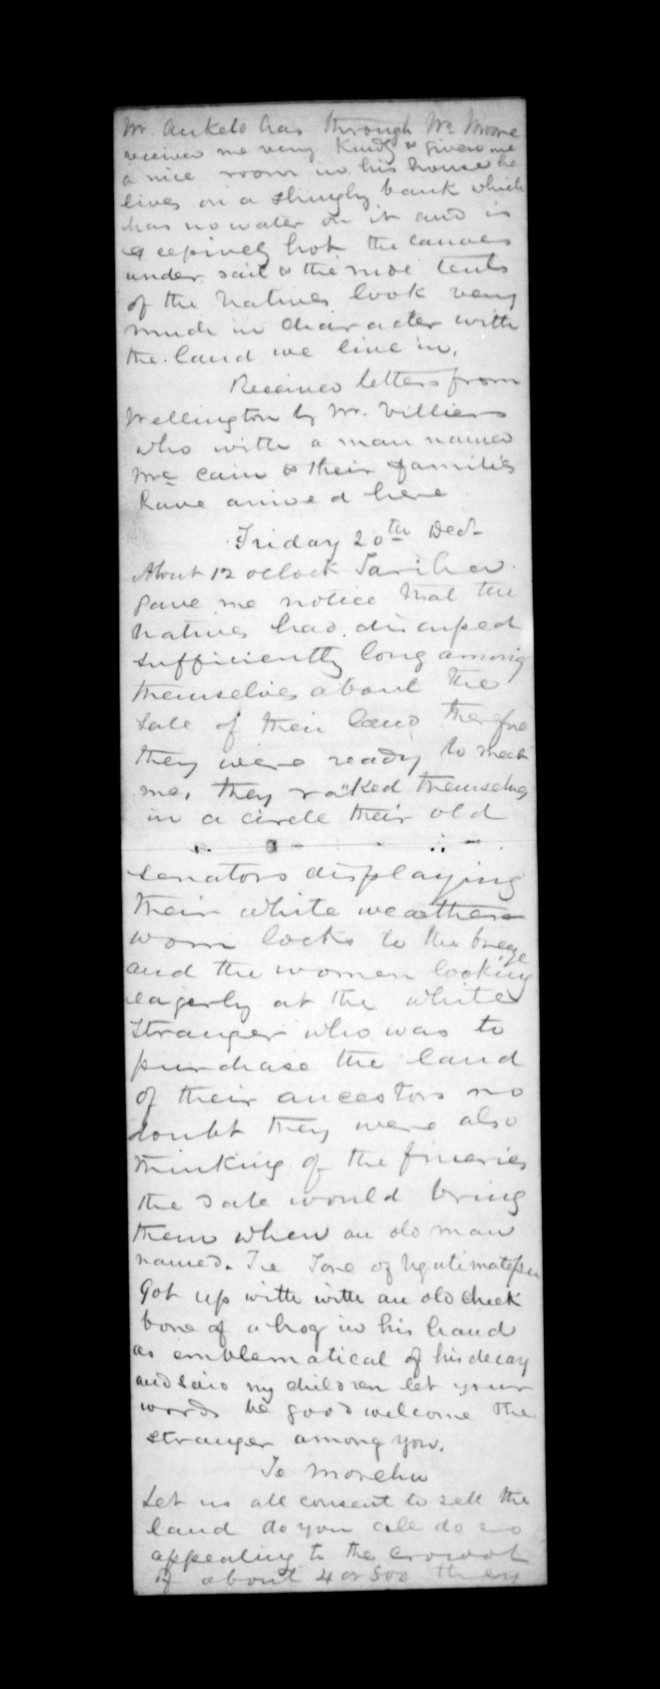 Mr. Ankelo has through Mr. Moore
received me very kindly & given me
a nice room in his house he
lives on a shingly bank which
has no water on it and is
excepively hot the canoes
under sail & the rude tents
of the natives look very
much in character with
the land we live in.
Received letters from
Wellington by Mr. Villiers
who with a man named
Mc Cain & their families
have arrived here
Friday 20th Decr
About 12 oclock
gave me notice that the
natives had discuped
sufficiently long among
themselves about the
sale of their land therefore
they were ready to meet
me. they ranked themselves
in a circle their old
senators displaying
their white weather
worn locks to the breeze
and the women looking
eagerly at the white
stranger who was to
purchase the land
of their ancestors no
doubt they were also
thinking of the fineries
the sale would bring
them when an old man
named. Te Tore of
Got up with with an old cheek
bone of a hog in his hand
as emblematical of his decay
and said my children let your
words be good welcome the
stranger among you.
Te Morehu
Let us all consent to sell the
land do you all do so
appealing to the crowd
of about 4 or 500 they